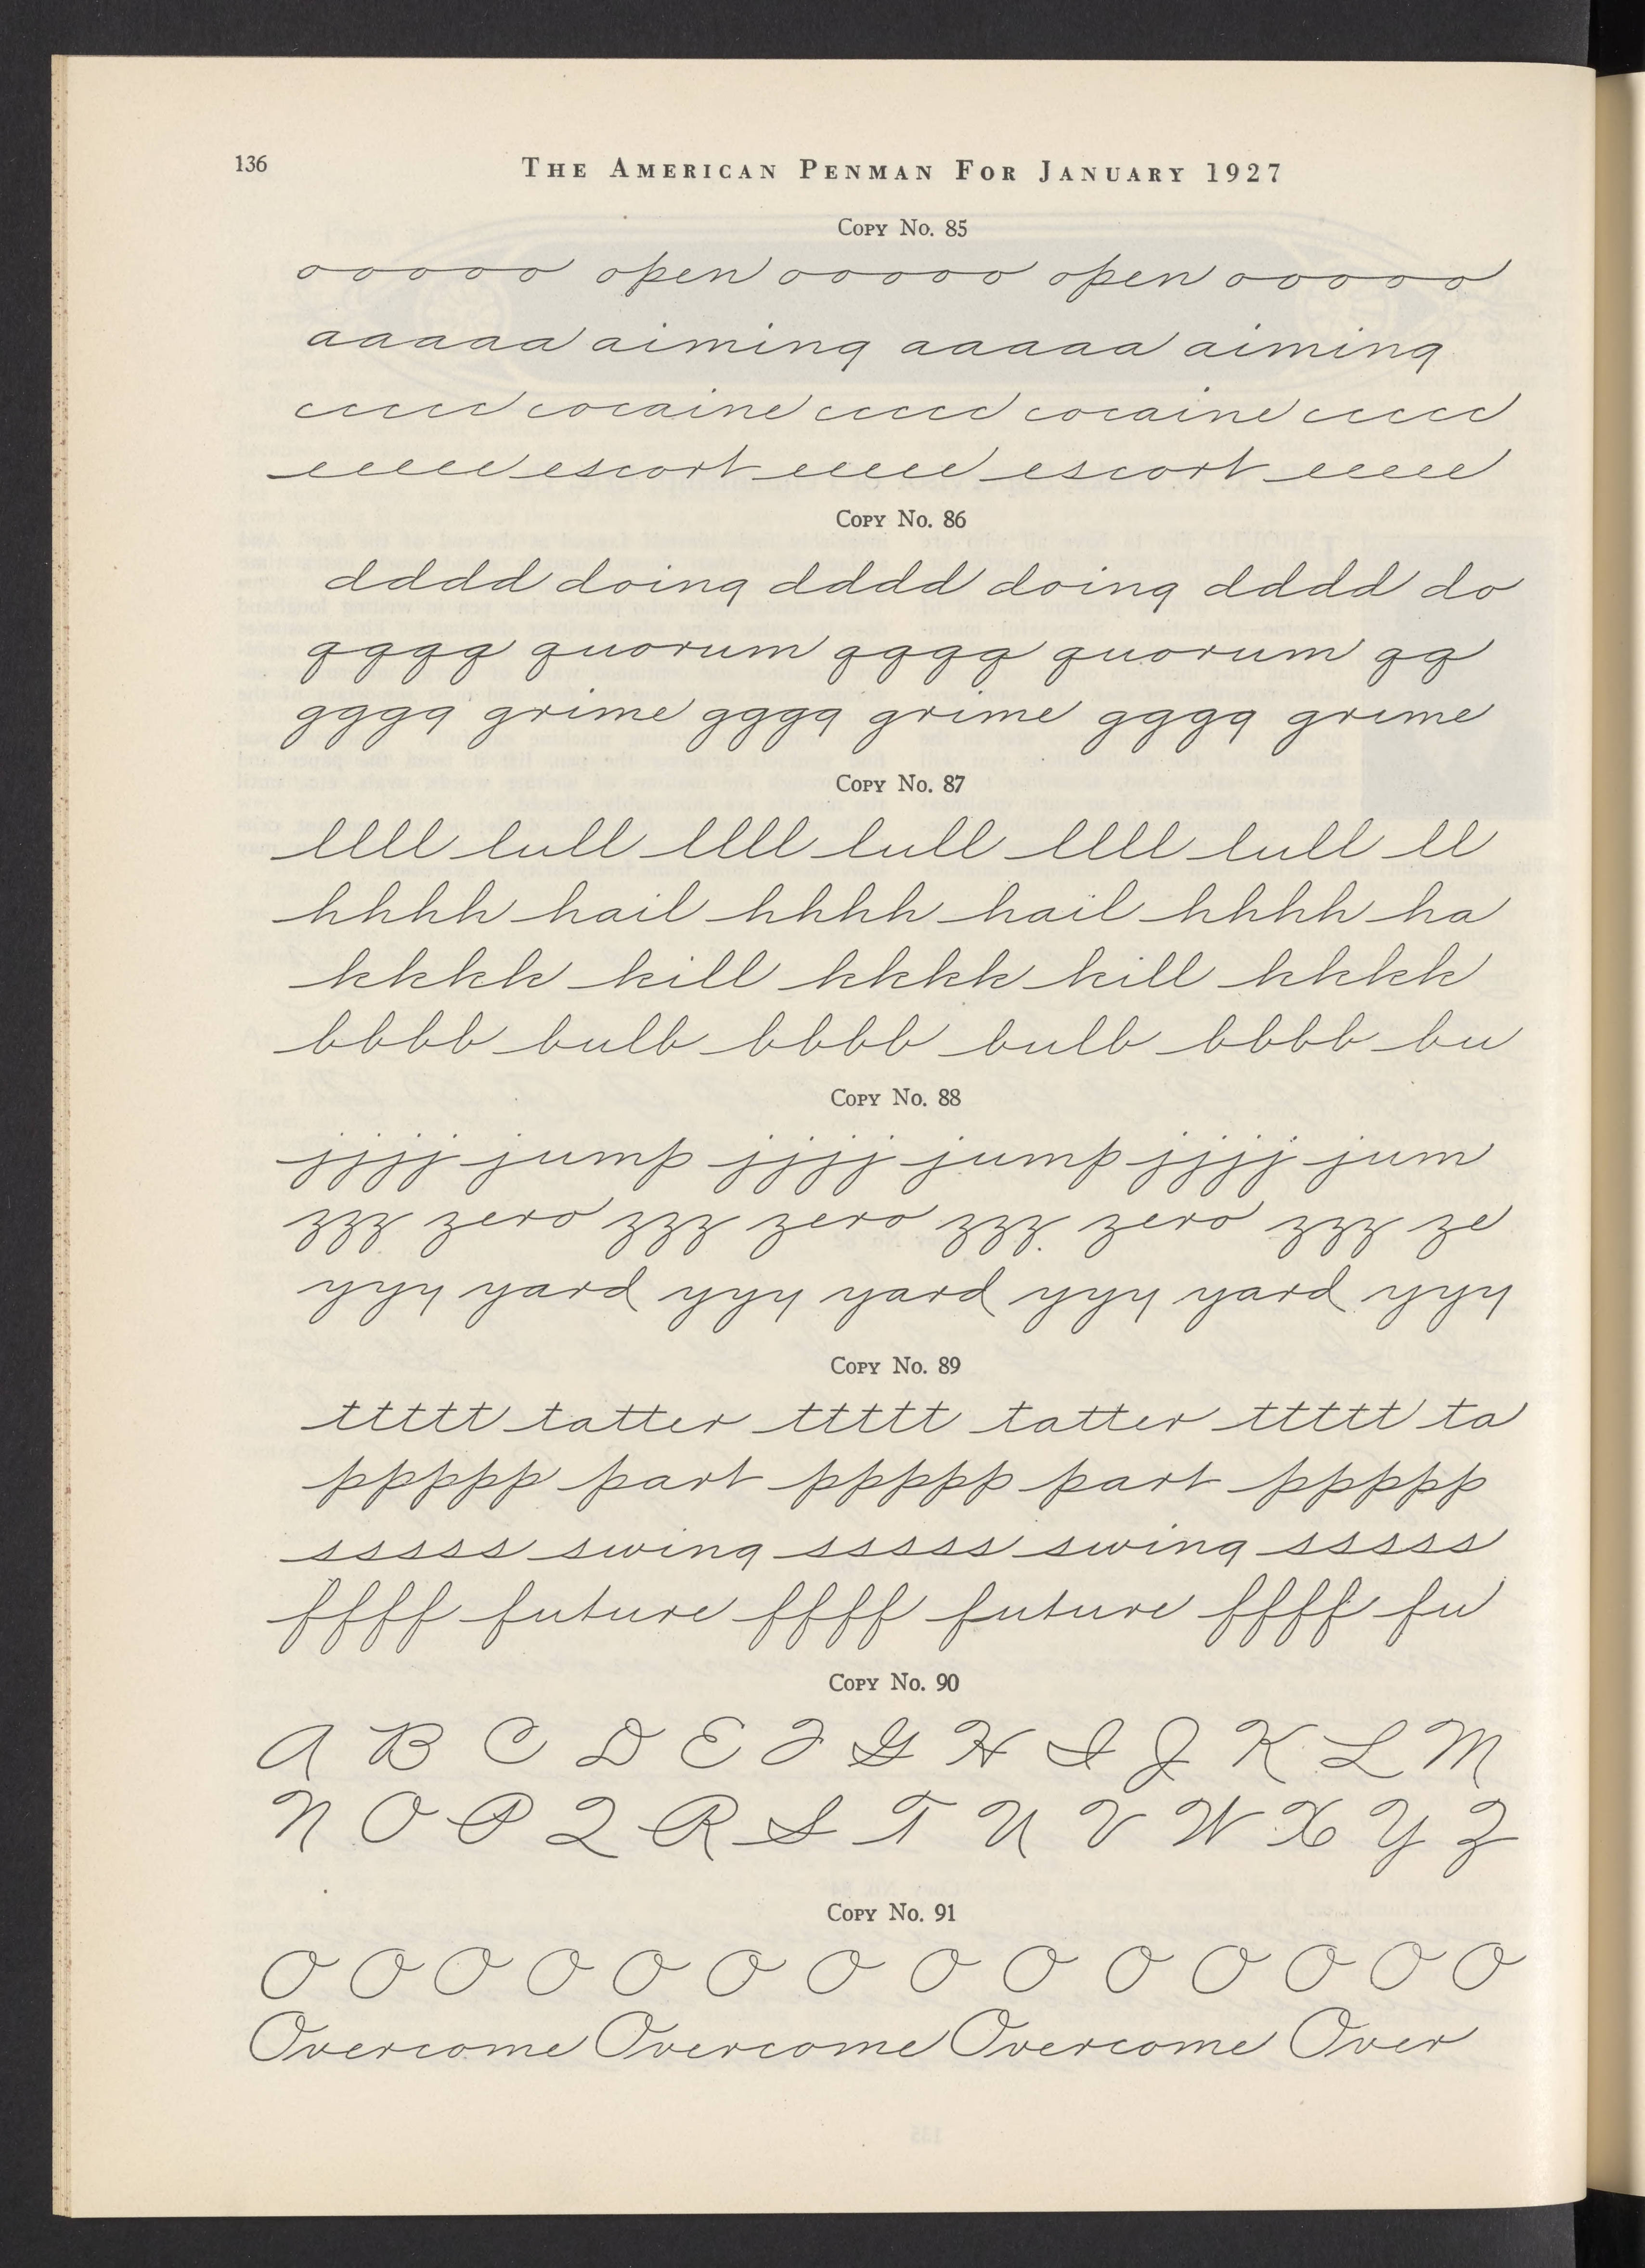 136
THE AMERICAN PENMAN FOR JANUARY 1927
COPY No. 85
ooooo open ooooo open ooooo
aaaaa aiming aaaaa aiming
ccccc cocaine ccccc cocaine ccccc
eeeee escort eeeee escort eeeee
COPY No. 86
ddddd doing ddddd doing dddd do
qqqq quorum qqqq quorum qq
gggg grime gggg grime gggg grime
COPY No. 87
llll lull llll lull llll lull ll
hhhh hail hhhh hail hhhh ha
kkkk kill kkkk kill kkkk
bbbb bulb bbbb bulb bbbb bu
COPY No. 88
jjjj jump jjjj jump jjjj jum
zzz zero zzz zero zzz zero zzz ze
yyy yard yyy yard yyy yard yyy
COPY No. 89
ttttt tatter ttttt tatter ttttt ta
ppppp part ppppp part ppppp
sssss swing sssss swing sssss
ffff future ffff future ffff fu
COPY No. 90
A B C D E F G H I J K L M
N O P Q R S T U V W X Y Z
COPY No. 91
O O O O O O O O O O O O O O
Overcome Overcome Overcome Over